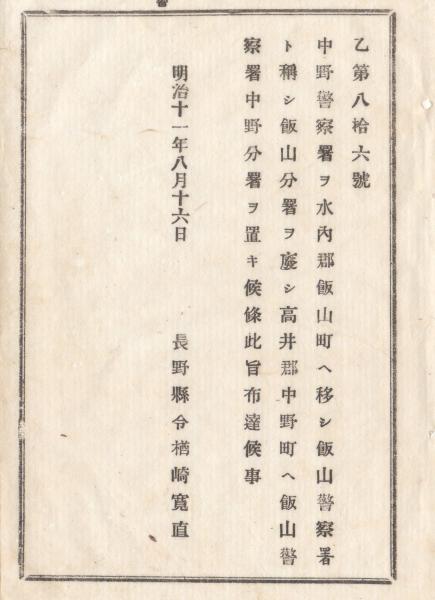 乙第八拾六號
中野警察署ヲ水內郡飯山町ヘ移シ飯山警察署
ト稱シ飯山分署ヲ廢シ高井郡中野町ヘ飯山警
察署中野分署ヲ置キ候條此旨布達候事
明治十一年八月十六日
長野縣令楢崎寬直